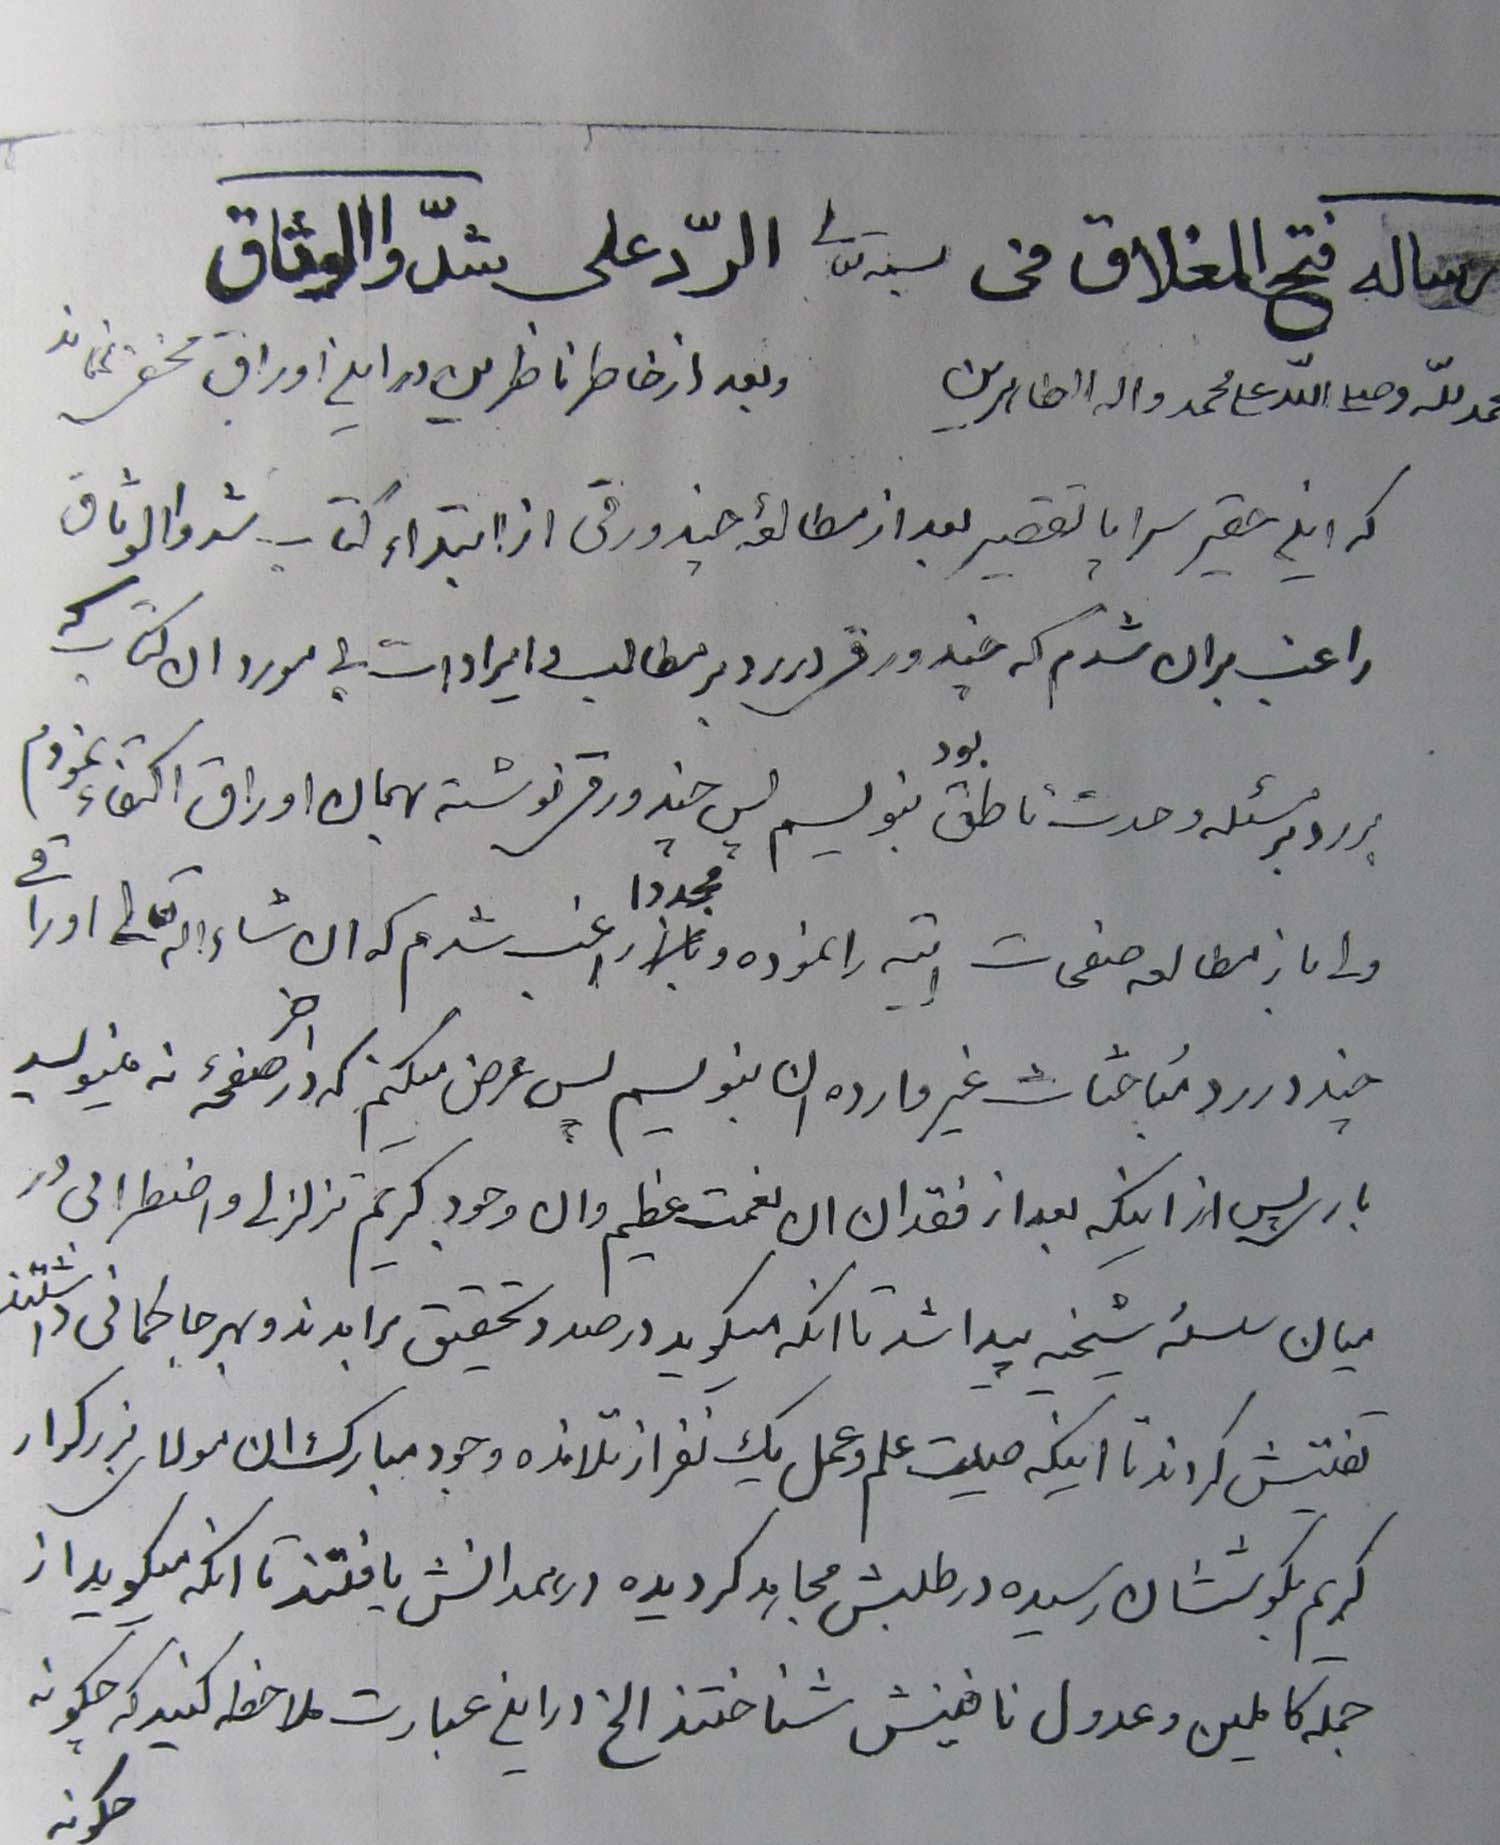 رساله فتح المغلاق فی الردّ علی شدّ والوثاق
حمد للّه وصلی اللّه علی محمد واله الطاهرین وبعد از خاطر ناظرین در این اوراق مخفی نماند
که این حقیر سراپا تقصیر بعد از مطالعهٔ چند ورقی از ابتداء کتاب شدوالوثاق
راغب بران شدم که چند ورقی در رد بر مطالب و ایرادات بی مورد ان کتاب که
در رد بر مسئله وحدت ناطق بود بنویسم پس چند ورقی نوشته بهمان اوراق اکتفاء نمودم
ولی باز مطالعه صفحات اتیه را نموده و مجددا راغب شدم که ان شاء الله تعالی اوراقی
چند در رد مباحثات غیر وارده ان بنویسم پس عرض میکنم که در اخر صفحهٔ نه مینویسد
باری پس از اینکه بعد از فقدان ان نعمت عظیم وان وجود کریم تزلزلی و اضطرابی در
میان سلسلهٔ شیخیه پیدا شد تا انکه میگوید در صدد تحقیق برامدند و بهر جا گمانی داشتند
تفتیش کردند تا اینکه صیت علم وعمل یک نفر از تلامذه وجود مبارک ان مولای بزرگوار
کریم بگوششان رسیده در طلبش مجاهد گردیده در همدانش یافتند تا انکه میگوید از
جمله کاملین وعدول نافینش شناختند الخ در این عبارت ملاحظه کنید که چگونه
چگونه